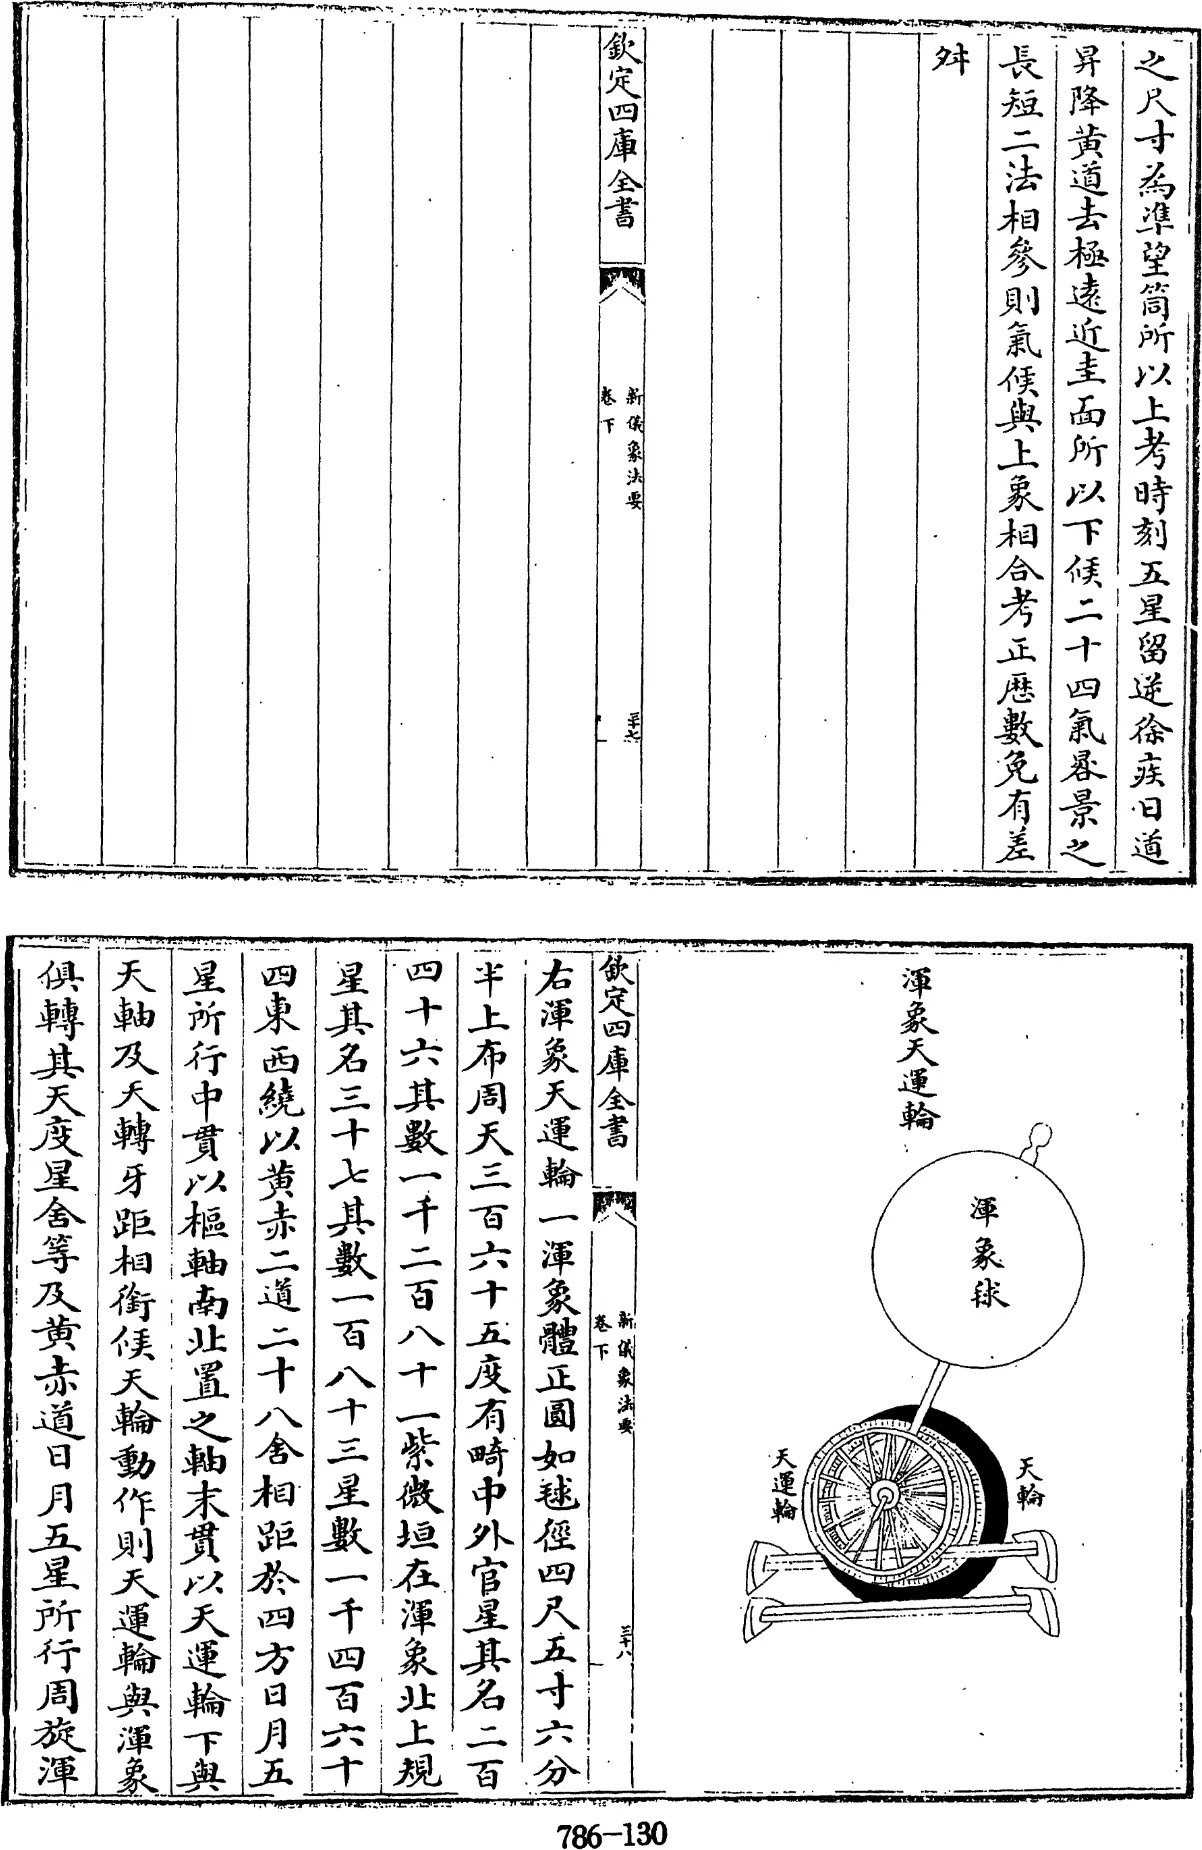 之尺寸為準望筒所以上考時刻五星留逆徐疾日道
昇降黄道去極逺近圭面所以下候二十四氣晷景之
長短二法相參則氣候與上象相合考正厯數免有差
舛
欽定四庫全書
新儀象法要
卷下
三十七
渾象天運輪
渾象毬
天運輪
天輪
欽定四庫全書
新儀象法要
卷下
三十八
右渾象天運輪一渾象體正圓如毬徑四尺五寸六分
半上布周天三百六十五度有畸中外官星其名二百
四十六其數一千二百八十一紫微垣在渾象北上規
星其名三十七其數一百八十三星數一千四百六十
四東西繞以黄赤二道二十八舍相距於四方日月五
星所行中貫以樞軸南北置之軸末貫以天運輪下與
天軸及天轉牙距相銜候天輪動作則天運輪與渾象
俱轉其天度星舍等及黄赤道日月五星所行周旋渾
786-130